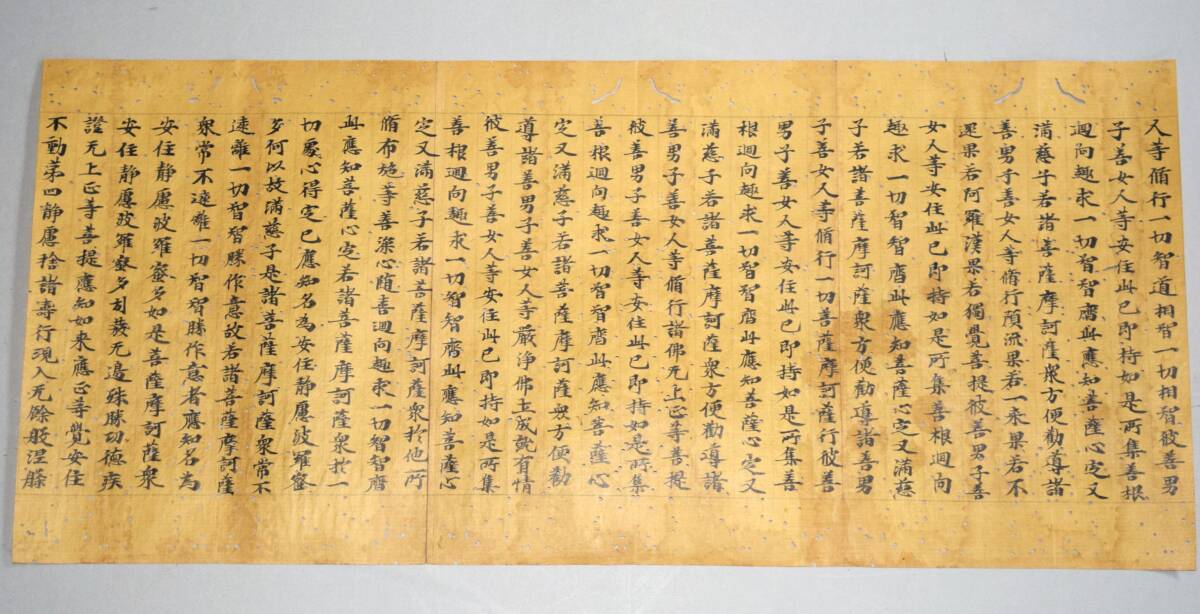 人等脩行一切智道相智一切相智彼善男
子善女人等安住此已即持如是所集善根
迴向趣求一切智智齊此應知菩薩心定又
滿慈子若諸菩薩摩訶薩眾方便勸導諸
善男子善女人等脩行預流果若一来果若不
還果若阿羅漢果若獨覺菩提彼善男子善
女人等安住此已即持如是所集善根迴向
趣求一切智智齊此應知菩薩心定又滿慈
子若諸菩薩摩訶薩眾方便勸導諸善男
子善女人等脩行一切菩薩摩訶薩行彼善
男子善女人等安住此已即持如是所集善
根迴向趣求一切智智齊此應知菩薩心定又
滿慈子若諸菩薩摩訶薩眾方便勸導諸
善男子善女人等脩行諸佛无上正等菩提
彼善男子善女人等安住此已即持如是所集
善根迴向趣求一切智智齊此應知菩薩心
定又滿慈子若諸菩薩摩訶薩眾方便勸
導諸善男子善女人等嚴淨佛土成就有情
彼善男子善女人等安住此已即持如是所集
善根迴向趣求一切智智齊此應知菩薩心
定又滿慈子若諸菩薩摩訶薩眾於他所
脩布施等善深心隨喜迴向趣求一切智智齊
此應知菩薩心定若諸菩薩摩訶薩眾於一
切處心得定已應知名為安住靜慮波羅蜜
多何以故滿慈子是諸菩薩摩訶薩眾常不
遠離一切智智勝作意故若諸菩薩摩訶薩
眾常不遠離一切智智勝作意者應知名為
安住靜慮波羅蜜多如是菩薩摩訶薩眾
安住靜慮波羅蜜多引發无邊殊勝功德疾
證无上正等菩提應知如来應正等覺安住
不動第四靜慮捨諸壽行現入无餘般涅槃